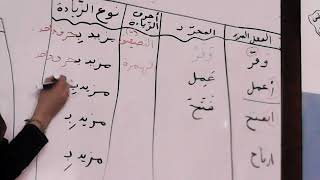 الفعل المزيد المجرد أحرف الزيادة نوع الزيادة
وفّر وَفَرَ التضعيف مزيد بحرف واحد
أعمل عَمِلَ الهمزة مزيد بحرف واحد
انفتح فَتَحَ مزيد بـ
ارتاح مزيد بـ
مزيد بـ